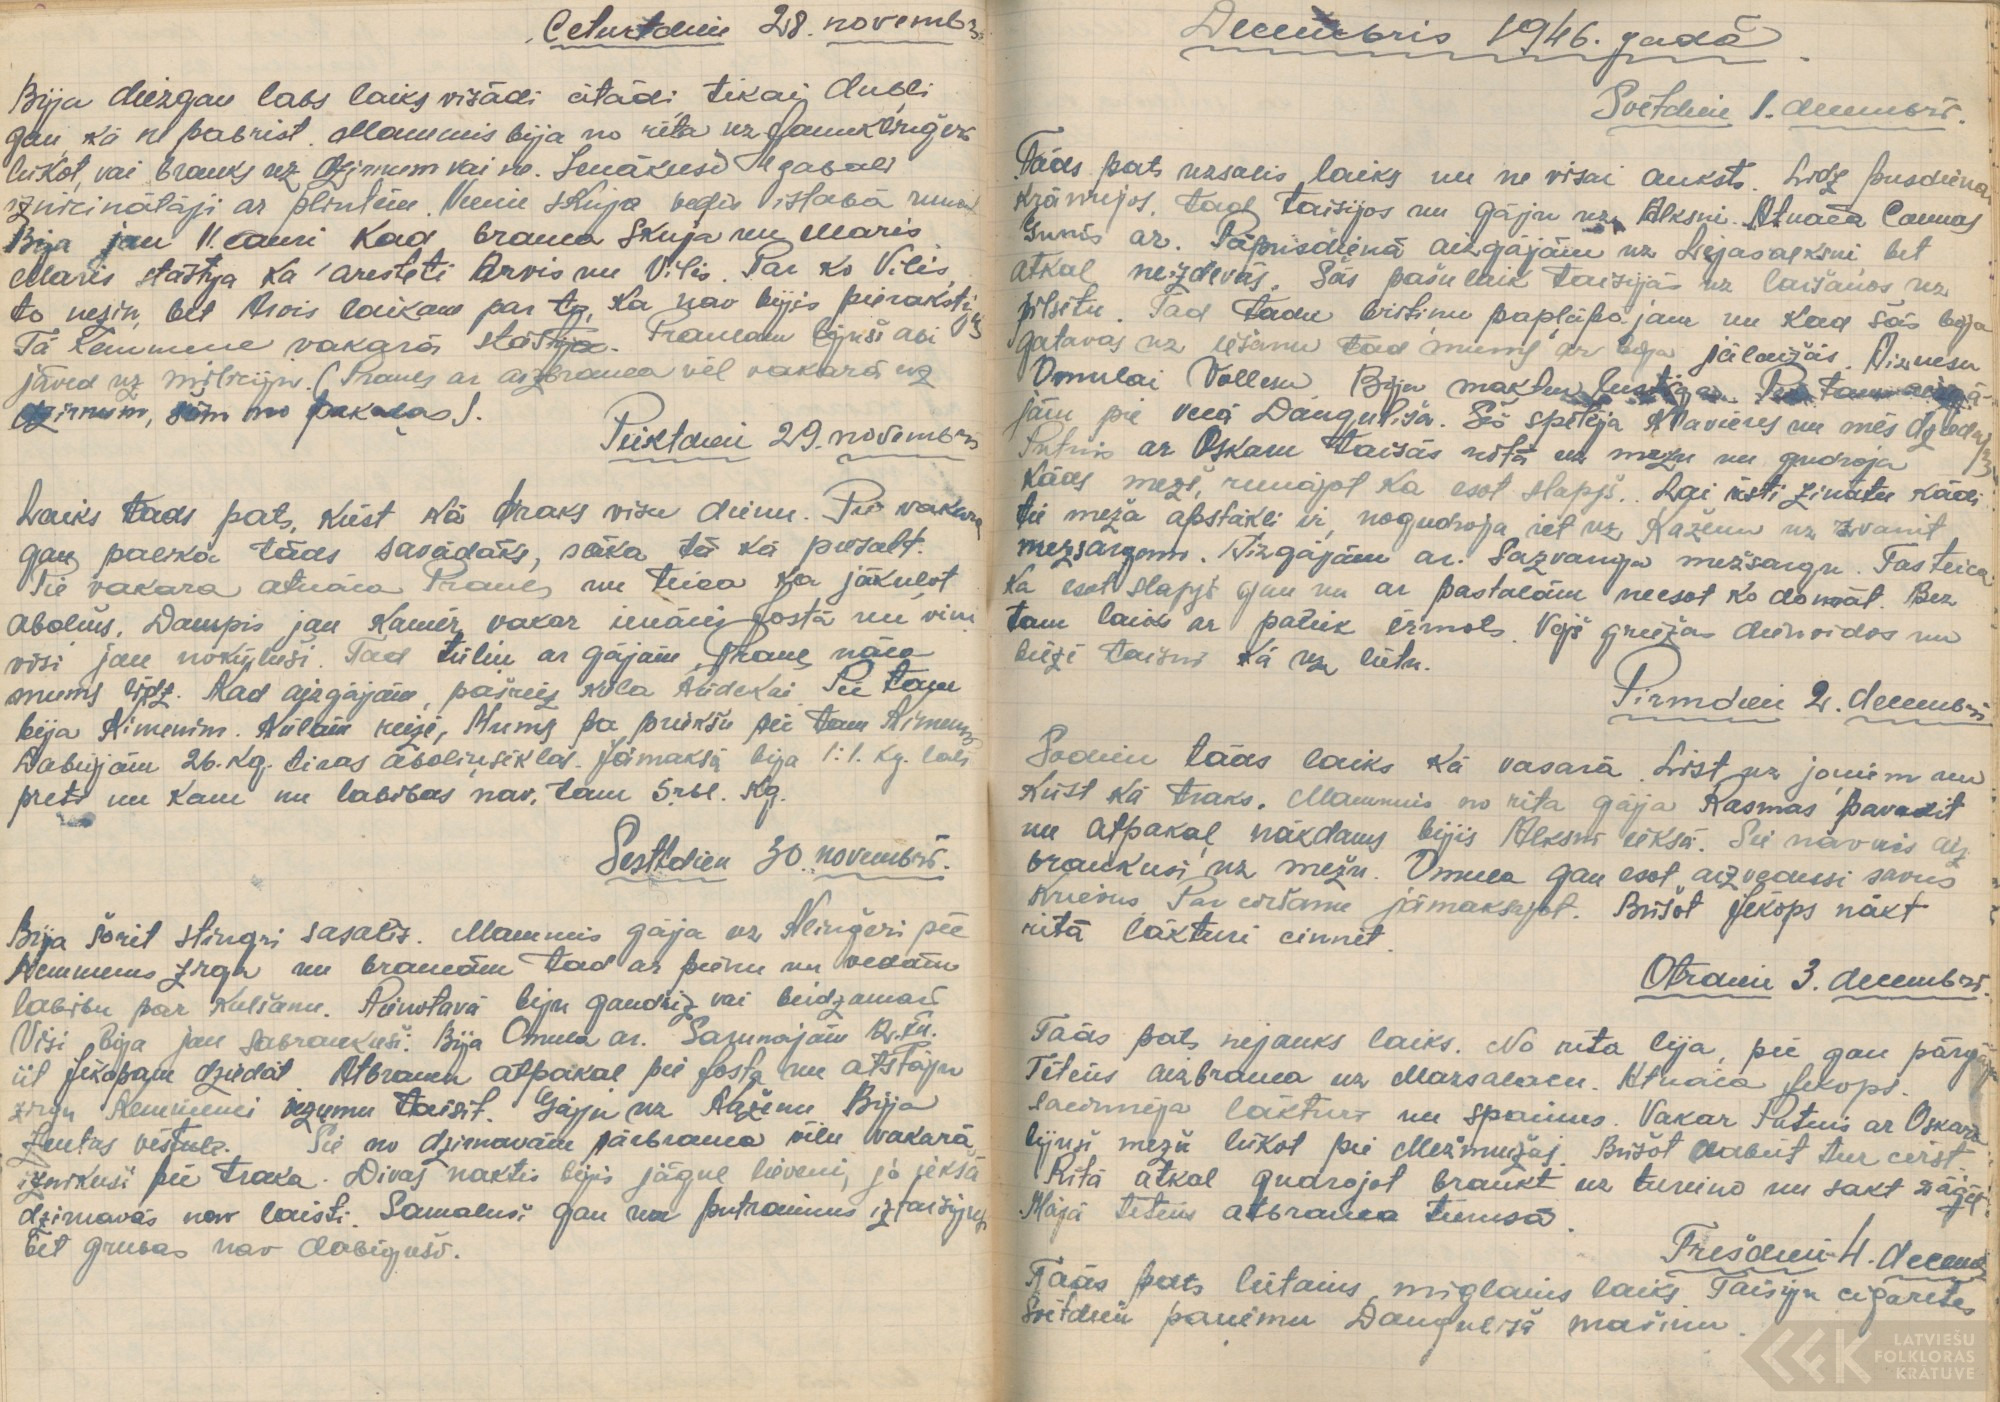 Ceturtdien 28. novembr.
Bija diezgan labs laiks visādi citādi tikai dubļi
gan, kā ne pabrist. Mammis bija no rīta uz Jaunkliņģeri
lūkot, vai brauks uz dzirnum vai ne. Ienākuši gabali
iznīcinātāji ar plintēm. Vienu Skuja vedis istabā runāt
Bija jau 11. cauri kad brauca Skuja un Maris
Maris stāstija ka arestēti Arvis un Vilis. Par ko Vilis
to nezin, bet Arvis laikam par to, ka nav bijis pierakstijies
Tā Kemmene vakarā stāstija. Francam bijuši abi
jāved uz miliciju. (Francs ar aizbrauca vēl vakarā uz
dzirnum, no pakaļas).
Piektdien 29. novembris
Laiks tāds pats, kūst kā traks visu dienu. Pie vakara
gan palika tāds savādāks, sāka tā kā piesalt.
Pie vakara atnāca Francs un teica ka jākuļot
āboliņš. Dampis jau kamēr vakar ienācis Jostā un viņi
visi jau nokūluši. Tad tūliņ ar gājām, Francs nāca
mums līdz. Kad aizgājām, pašreiz kūla Pie tam
bija Ķimenim. Kūlām reizē, Mums pa priekšu pēc tam Ķimenim
Dabūjām 26. kg. tīras āboliņsēklas. Jāmaksā bija 1:1. kg. labi
pretī un kam nu labības nav, tam 5 rbl. kg.
Sestdien 30. novembris.
Bija šorīt stingri sasalis. Mammis gāja uz Kliņģeri pēc
Kemmenes zirga un braucām tad ar pienu un vedām
labību par kulšanu. Pienotavā biju gandrīz vai beidzamais
Visi bija jau sabraukuši. Bija Omula ar. Sarunājām
iit Jēkabam dziedāt Atbraucu atpakaļ pie Josta un atstāju
zirgu Kemmenei iezumu taisīt. Gāju uz Kažēnu Bija
Zentas vēstule. Šie no dzirnavām pārbrauca vēlu vakarā
iznīkuši pie traka. Divas naktis bijis jāguļ lievenī, jo iekšā
dzirnavās nav laisti. Samaluši gan un putraimus iztaisījuši
bet grubas nav dabiguši.
Decembris 1946. gadā
Svētdien 1. decembris.
Tāds pats uzsalis laiks un ne visai auksts. Līdz pusdienai
krāmējos, tad taisijos un gāju uz Alksni. Atnāca Caunas
Gunis ar. Pēcpusdienā aizgājām uz Lejasalksni bet
atkal neizdevās. Šās pašulaik taisijās uz laišanos uz
pilsētu. Tad tādu brītiņu papļāpājam un kad šās bija
gatavas uz iešanu tad mums ar bija jālaižās. Aiznesu
Omulai Vollesu Biju maktен
jām pie veča Danguliša. Šis spēlēja klavieres un mēs dziedājām
Putnis ar Oskaru taisās rītā uz mežu un gudroja
kāds mežš, runājot ka esot slapjš. Lai īsti zinātu kādi
tie meža apstākļi ir, nogudroja iet uz Kažēnu uz zvanīt
mežsargam. Aizgājām ar. Sazvanīja mežsargu. Tas teica
ka esot slapjš gan un ar pastalām neesot ko domāt. Bez
tam laiks ar paliek ērmots. Vējš griežas dienvidos un
birzē taisni kā uz lietu.
Pirmdien 2. decembris
Šodien tāds laiks kā vasarā. Līst uz joniem un
kūst kā traks. Mammis no rīta gāja Kasmas pavadīt
un atpakaļ nākdams bijis Alksnī iekšā. Šie navuis aiz
braukuši uz mežu. Omula gan esot aizvedusi savus
Par ciršanu jāmaksājot. Būšot Jēkops nākt
rītā lākturi cinnēt.
Otrdien 3. decembris.
Tāds pats nejauks laiks. No rīta lija, pēc gan pārgāja
Tētēns aizbrauca uz Mazsalacu. Atnāca Jēkops.
Sacinnēja lākturi un spainus. Vakar Putnis ar Oskaru
bijuši mežā lūkot pie Mežmuižas. Būšot dabūt tur cirst.
Rītā atkal gudrojot braukt uz turieni un sākt zāģēt.
Mājā Tētēns atbrauca tumsā.
Trešdien 4. decemb
Tāds pats lietains, miglains laiks. Taisiju cigaretes
Svētdien paņēmu Danguliša mašīnu.
LATVIEŠU
FOLKLORAS
KRĀTUVE